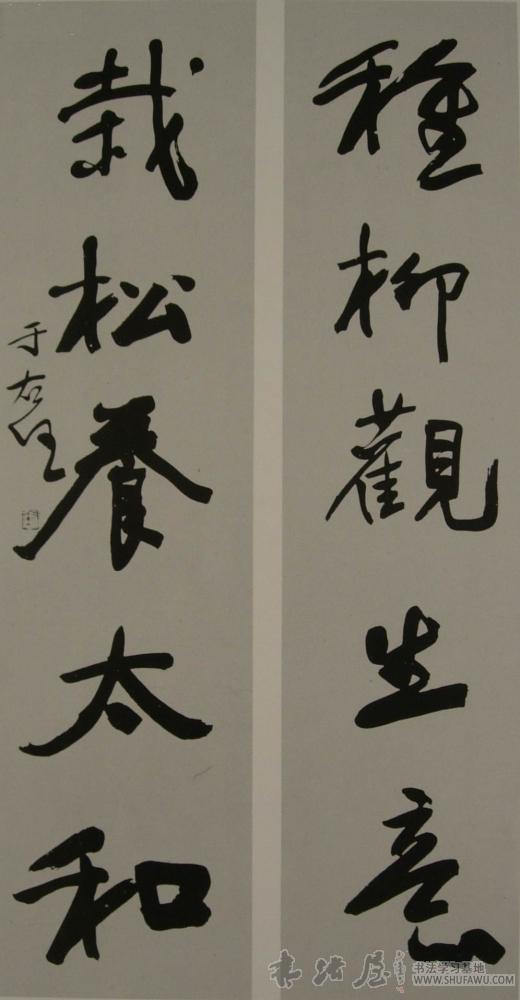 種柳觀生意
栽松養太和
于右任
書法屋
书法学习基地
WWW.SHUFAWU.COM